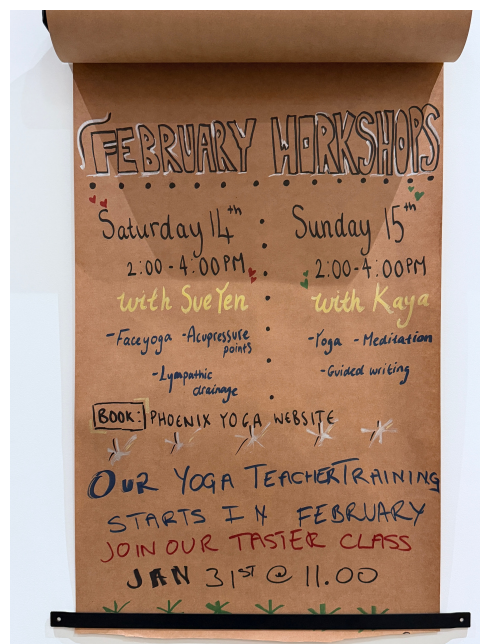 FEBRUARY WORKSHOPS
Saturday 14th
2:00-4:00PM
with SueYen
-Faceyoga -Acupressure points
-Lympathic drainage
Sunday 15th
2:00-4:00PM
with Kaya
-Yoga -Meditation
-Guided writing
BOOK: PHOENIX YOGA WEBSITE
OUR YOGA TEACHERTRAINING
STARTS IN FEBRUARY
JOIN OUR TASTER CLASS
JAN 31ST @ 11.00